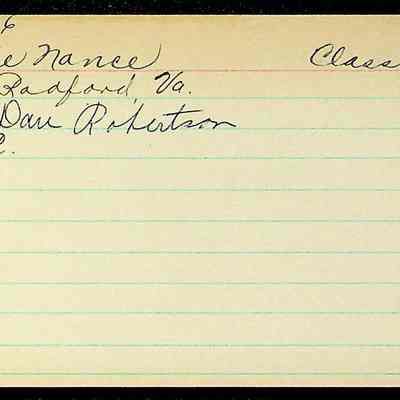 6
e Nance Class
Radford, Va.
Dan Robertson